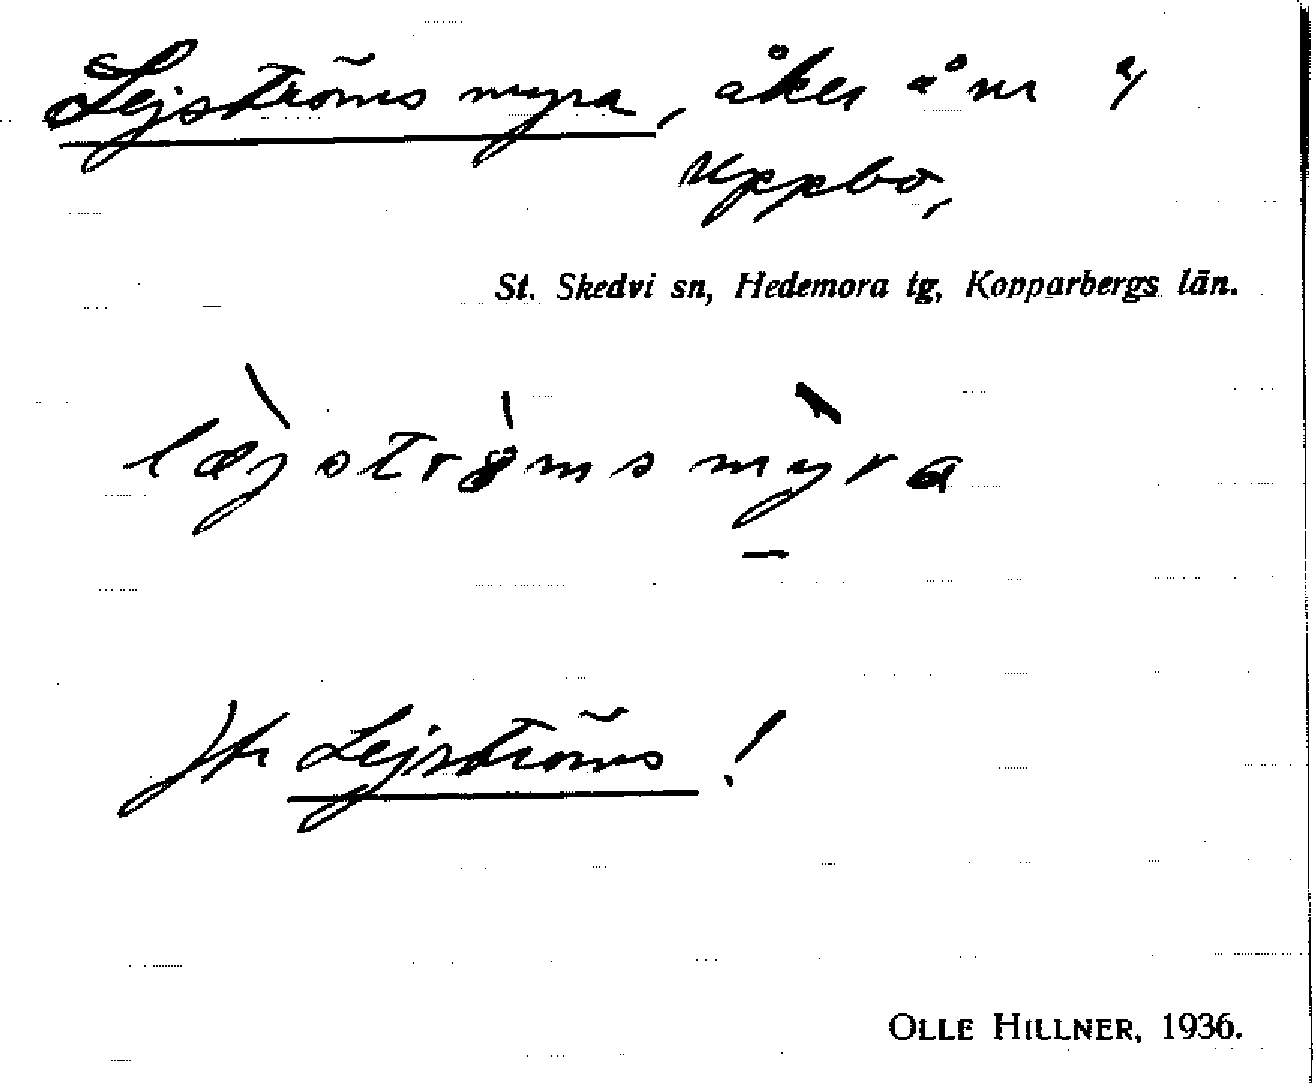 Lejströms myra, åker å nr 4
Uppbo,
St. Skedvi sn, Hedemora tg, Kopparbergs län.
læjströms myra
Jfr Lejströms!
OLLE HILLNER, 1936.